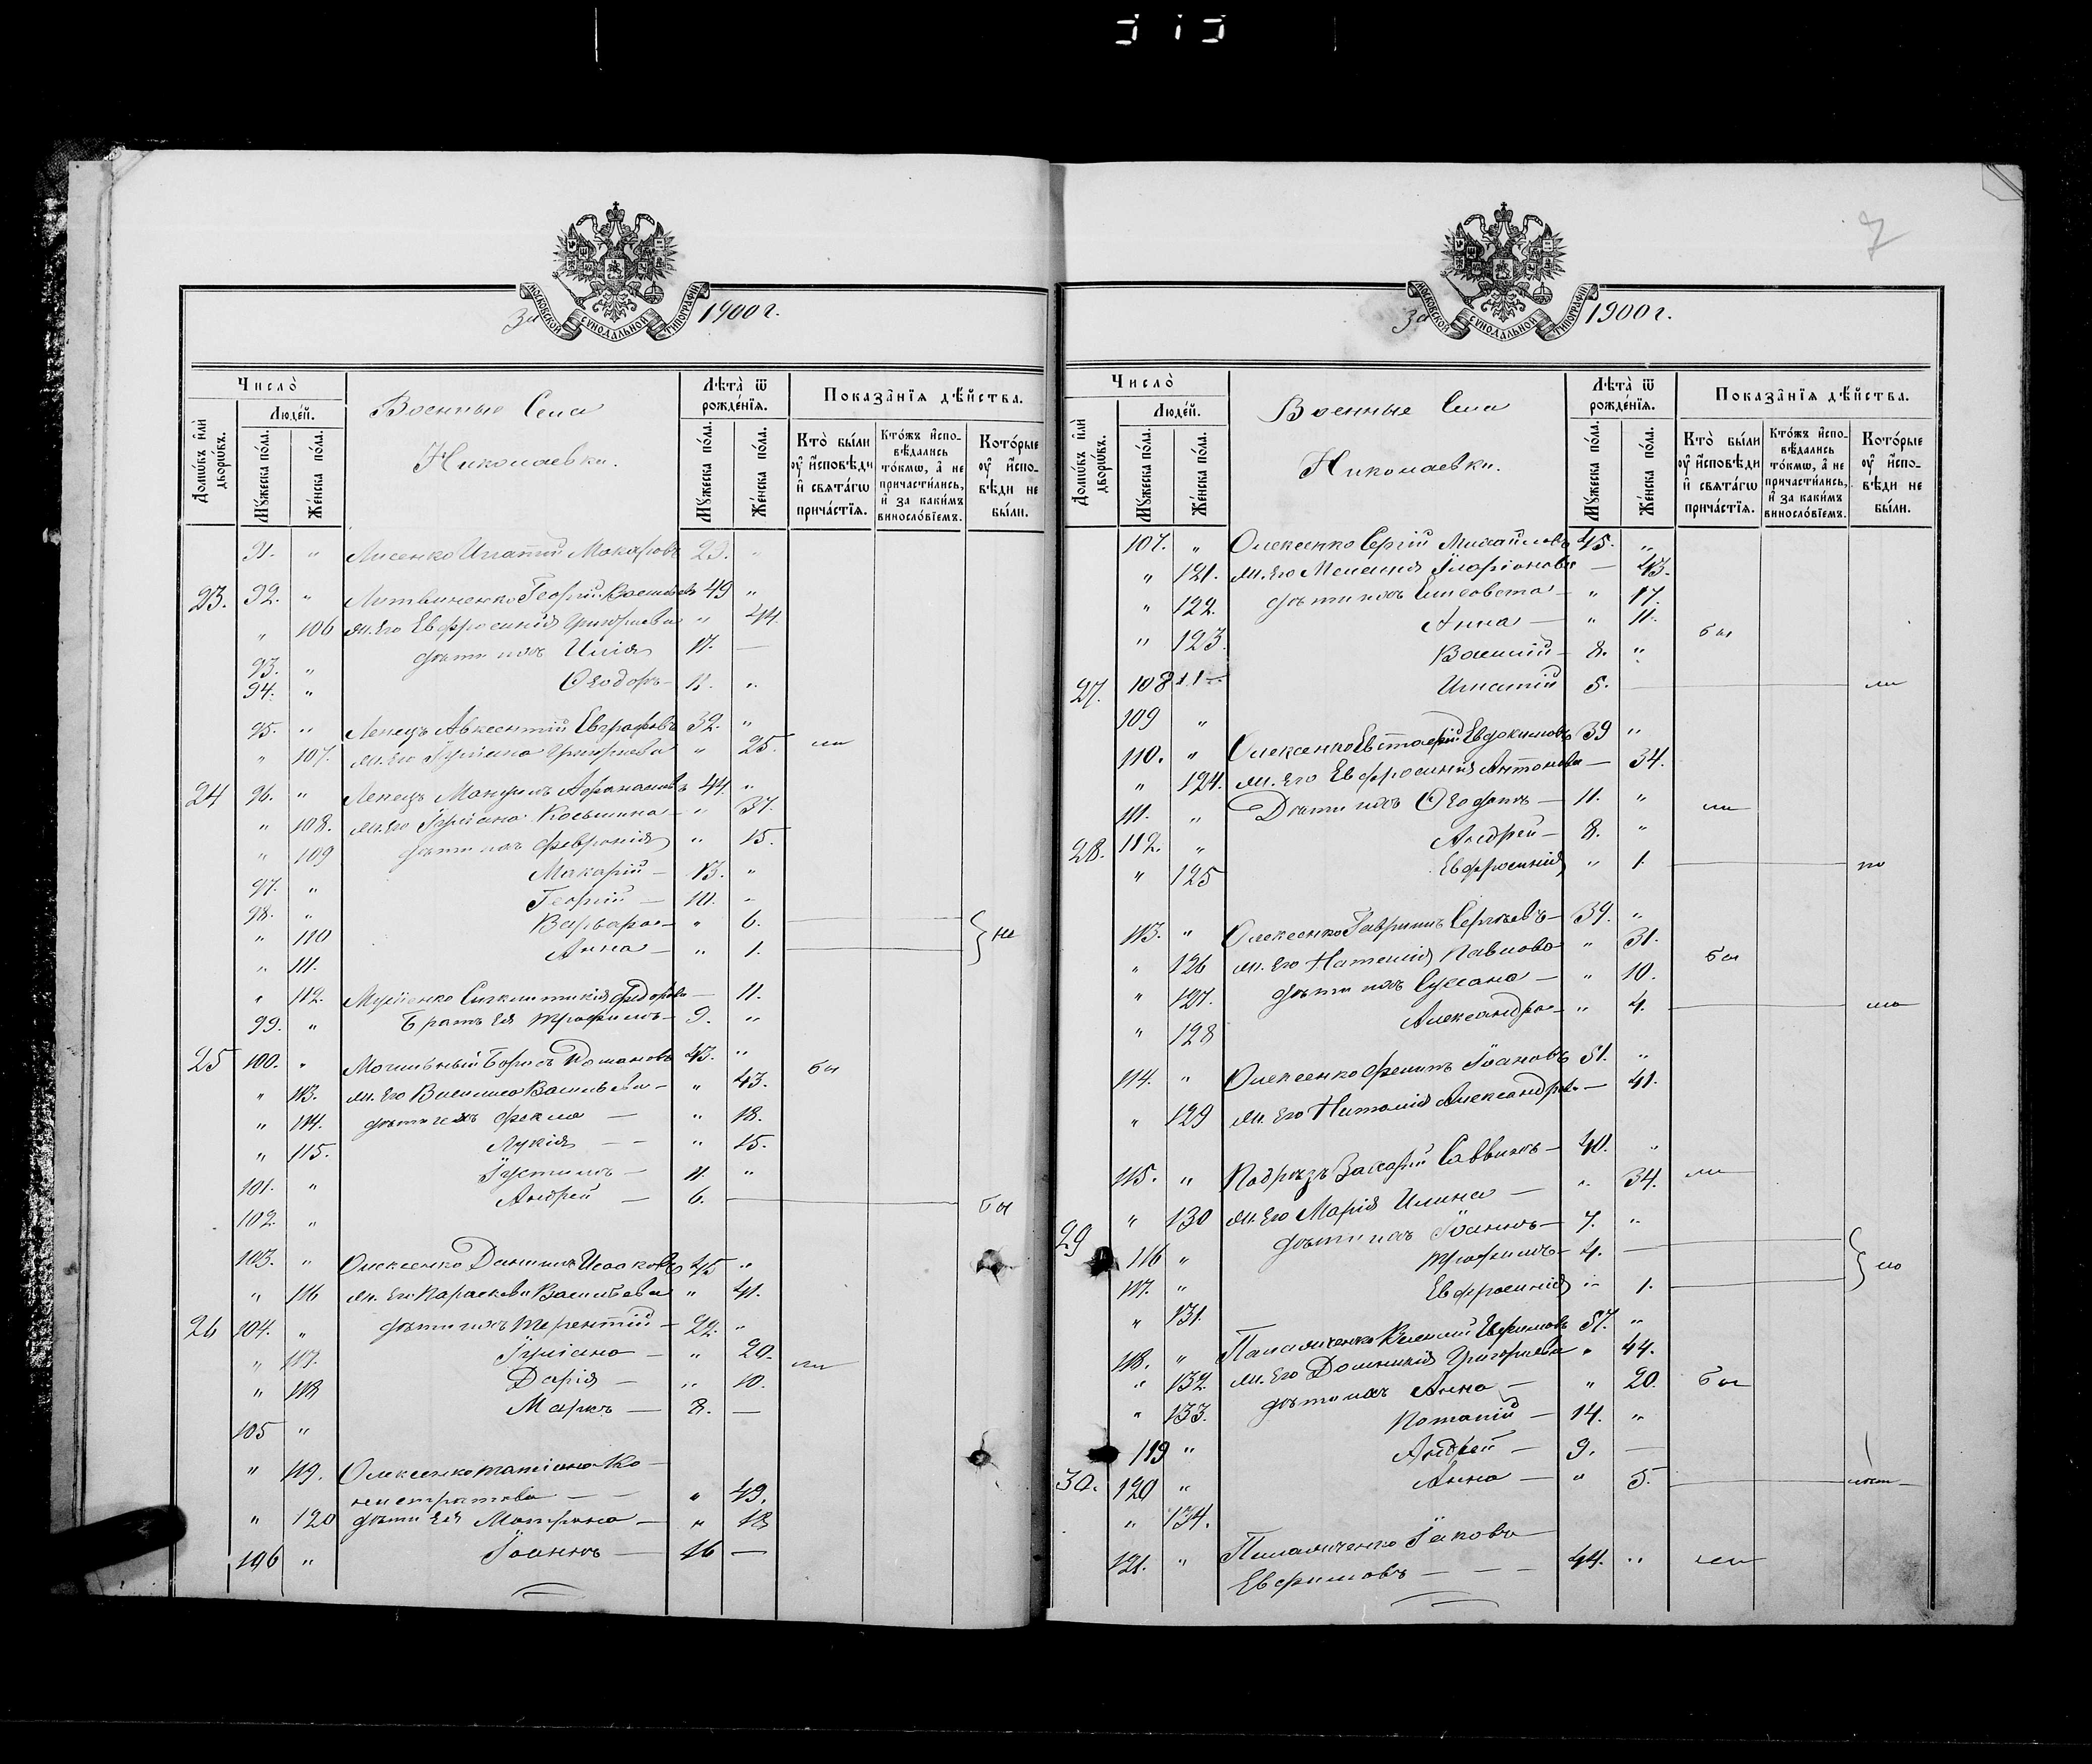 За 1900 г.
МОСКОВСКОЙ СУНОДАЛЬНОЙ ТИПОГРАФІИ
Число̀
Домѡ́въ и҆лѝ дворѡ́въ.
Люде́й.
Мꙋ́жеска по́ла.
Же́нска по́ла.
Военные Села
Николаевки.
Лѣ́та ѿ рожде́нїѧ.
Мꙋ́жеска по́ла.
Же́нска по́ла.
Показа̑нїѧ дѣ́йства.
Кто̀ бы́ли ᲂу҆ и҆́сповѣди и҆ свѧта́гѡ прича́стїѧ.
Кто́жъ и҆спо-вѣ́дались то́кмѡ, а҆ не причасти́лись, и҆ за каки́мъ винослові́емъ.
Кото́рые ᲂу҆ и҆́спо-вѣди не бы́ли.
91. " Лисенко Игнатій Макаровъ 29. "
23. 92. " Литвиненко Георгій Васильевъ 49 "
" 106 Ж. Его Евфросинія Григорьева " 44.
93. " дѣти ихъ Илія 17. —
94. " Ѳеодоръ — 11. "
95. " Лепецъ Авксентій Евграфовъ 32. "
" 107. Ж. Его Іуліана Григорьева " 25. ли
24 96. " Лепецъ Максимъ Афанасьевъ 44. "
" 108. Ж. Его Іуліана Косьмина — " 37.
" 109 дѣти ихъ Февронія " 15.
97. " Макарій — 13. "
98. " Георгій — 10. "
" 110 Варвара — " 6.
" 111. Анна — " 1. не
" 112. Синклитикія Федорова — 11.
99. " Братъ Ея Трофимъ — 9. "
25 100. " Могильный Борисъ Романовъ 43. " бы
" 113. Ж. Его Васильева — " 43.
" 114. дѣти ихъ Фекла — " 18.
" 115. Лукія — — " 15.
101. " Іустинъ — 11. "
102. " Андрей — 6. бы
103. " Олексенко Даніилъ Исааковъ 45 "
" 116 Ж. Его Параскева Васильева " 41.
26 104. " дѣти ихъ Терентій — 22. "
" 117. Іуліана — " 20. ли
" 118 Дарія — " 10.
105 " Маркъ — 8. —
" 119. Олексенко Татіана Ка-
листратова — — " 49.
" 120 дѣти Ея Матрона — " 18
106 " Іоаннъ — 16 —
7
За 1900 г.
МОСКОВСКОЙ СУНОДАЛЬНОЙ ТИПОГРАФІИ
Число̀
Домѡ́въ и҆лѝ дворѡ́въ.
Люде́й.
Мꙋ́жеска по́ла.
Же́нска по́ла.
Военные Села
Николаевки.
Лѣ́та ѿ рожде́нїѧ.
Мꙋ́жеска по́ла.
Же́нска по́ла.
Показа̑нїѧ дѣ́йства.
Кто̀ бы́ли ᲂу҆ и҆́сповѣди и҆ свѧта́гѡ прича́стїѧ.
Кто́жъ и҆спо-вѣ́дались то́кмѡ, а҆ не причасти́лись, и҆ за каки́мъ винослові́емъ.
Кото́рые ᲂу҆ и҆́спо-вѣди не бы́ли.
107. " Олексенко Сергій Михайловъ 45. "
" 121. Ж. Его Меланія Иларіонова — 43.
" 122. дѣти ихъ Елисавета — " 17.
" 123. Анна — " 11. бы
27. 108 Василій — 8. "
109 " Игнатій 5. ли
110. " Олексенко Евстафій Евдокимовъ 39 "
" 124. Ж. Его Евфросинія Антонова — 34.
111. " Дѣти ихъ — 11. " ли
28. 112. " Андрей — 8. "
" 125 Евфросинія " 1.
113. " Олексенко Гавріилъ Сергѣевъ — 39. "
" 126 Ж. Его Наталія Павлова " 31. бы
" 127. дѣти ихъ Сусана — " 10.
" 128 Александра — " 4.
114. " Олексенко Филипъ Іоановъ 51. "
" 129 Ж. Его Наталія Александрова — 41.
115. " Подрѣзъ Захарій Саввинъ — 40. "
" 130 Ж. Его Марія Илина — " 34. ли
29 116 " дѣти ихъ Іоаннъ — 7. "
117. " Трофимъ — 4. —
" 131. Евфросинія " 1.
118. " Василій Евфимовъ 57. "
" 132. Ж. Его Домникія Григорьева " 44.
" 133. дѣти ихъ Анна — " 20. бы
119 " Потапій — 14. "
30. 120 " Андрей — 9. —
" 134. Анна — " 5.
121. " Іаковъ
Евфимовъ — — — 44. " ли